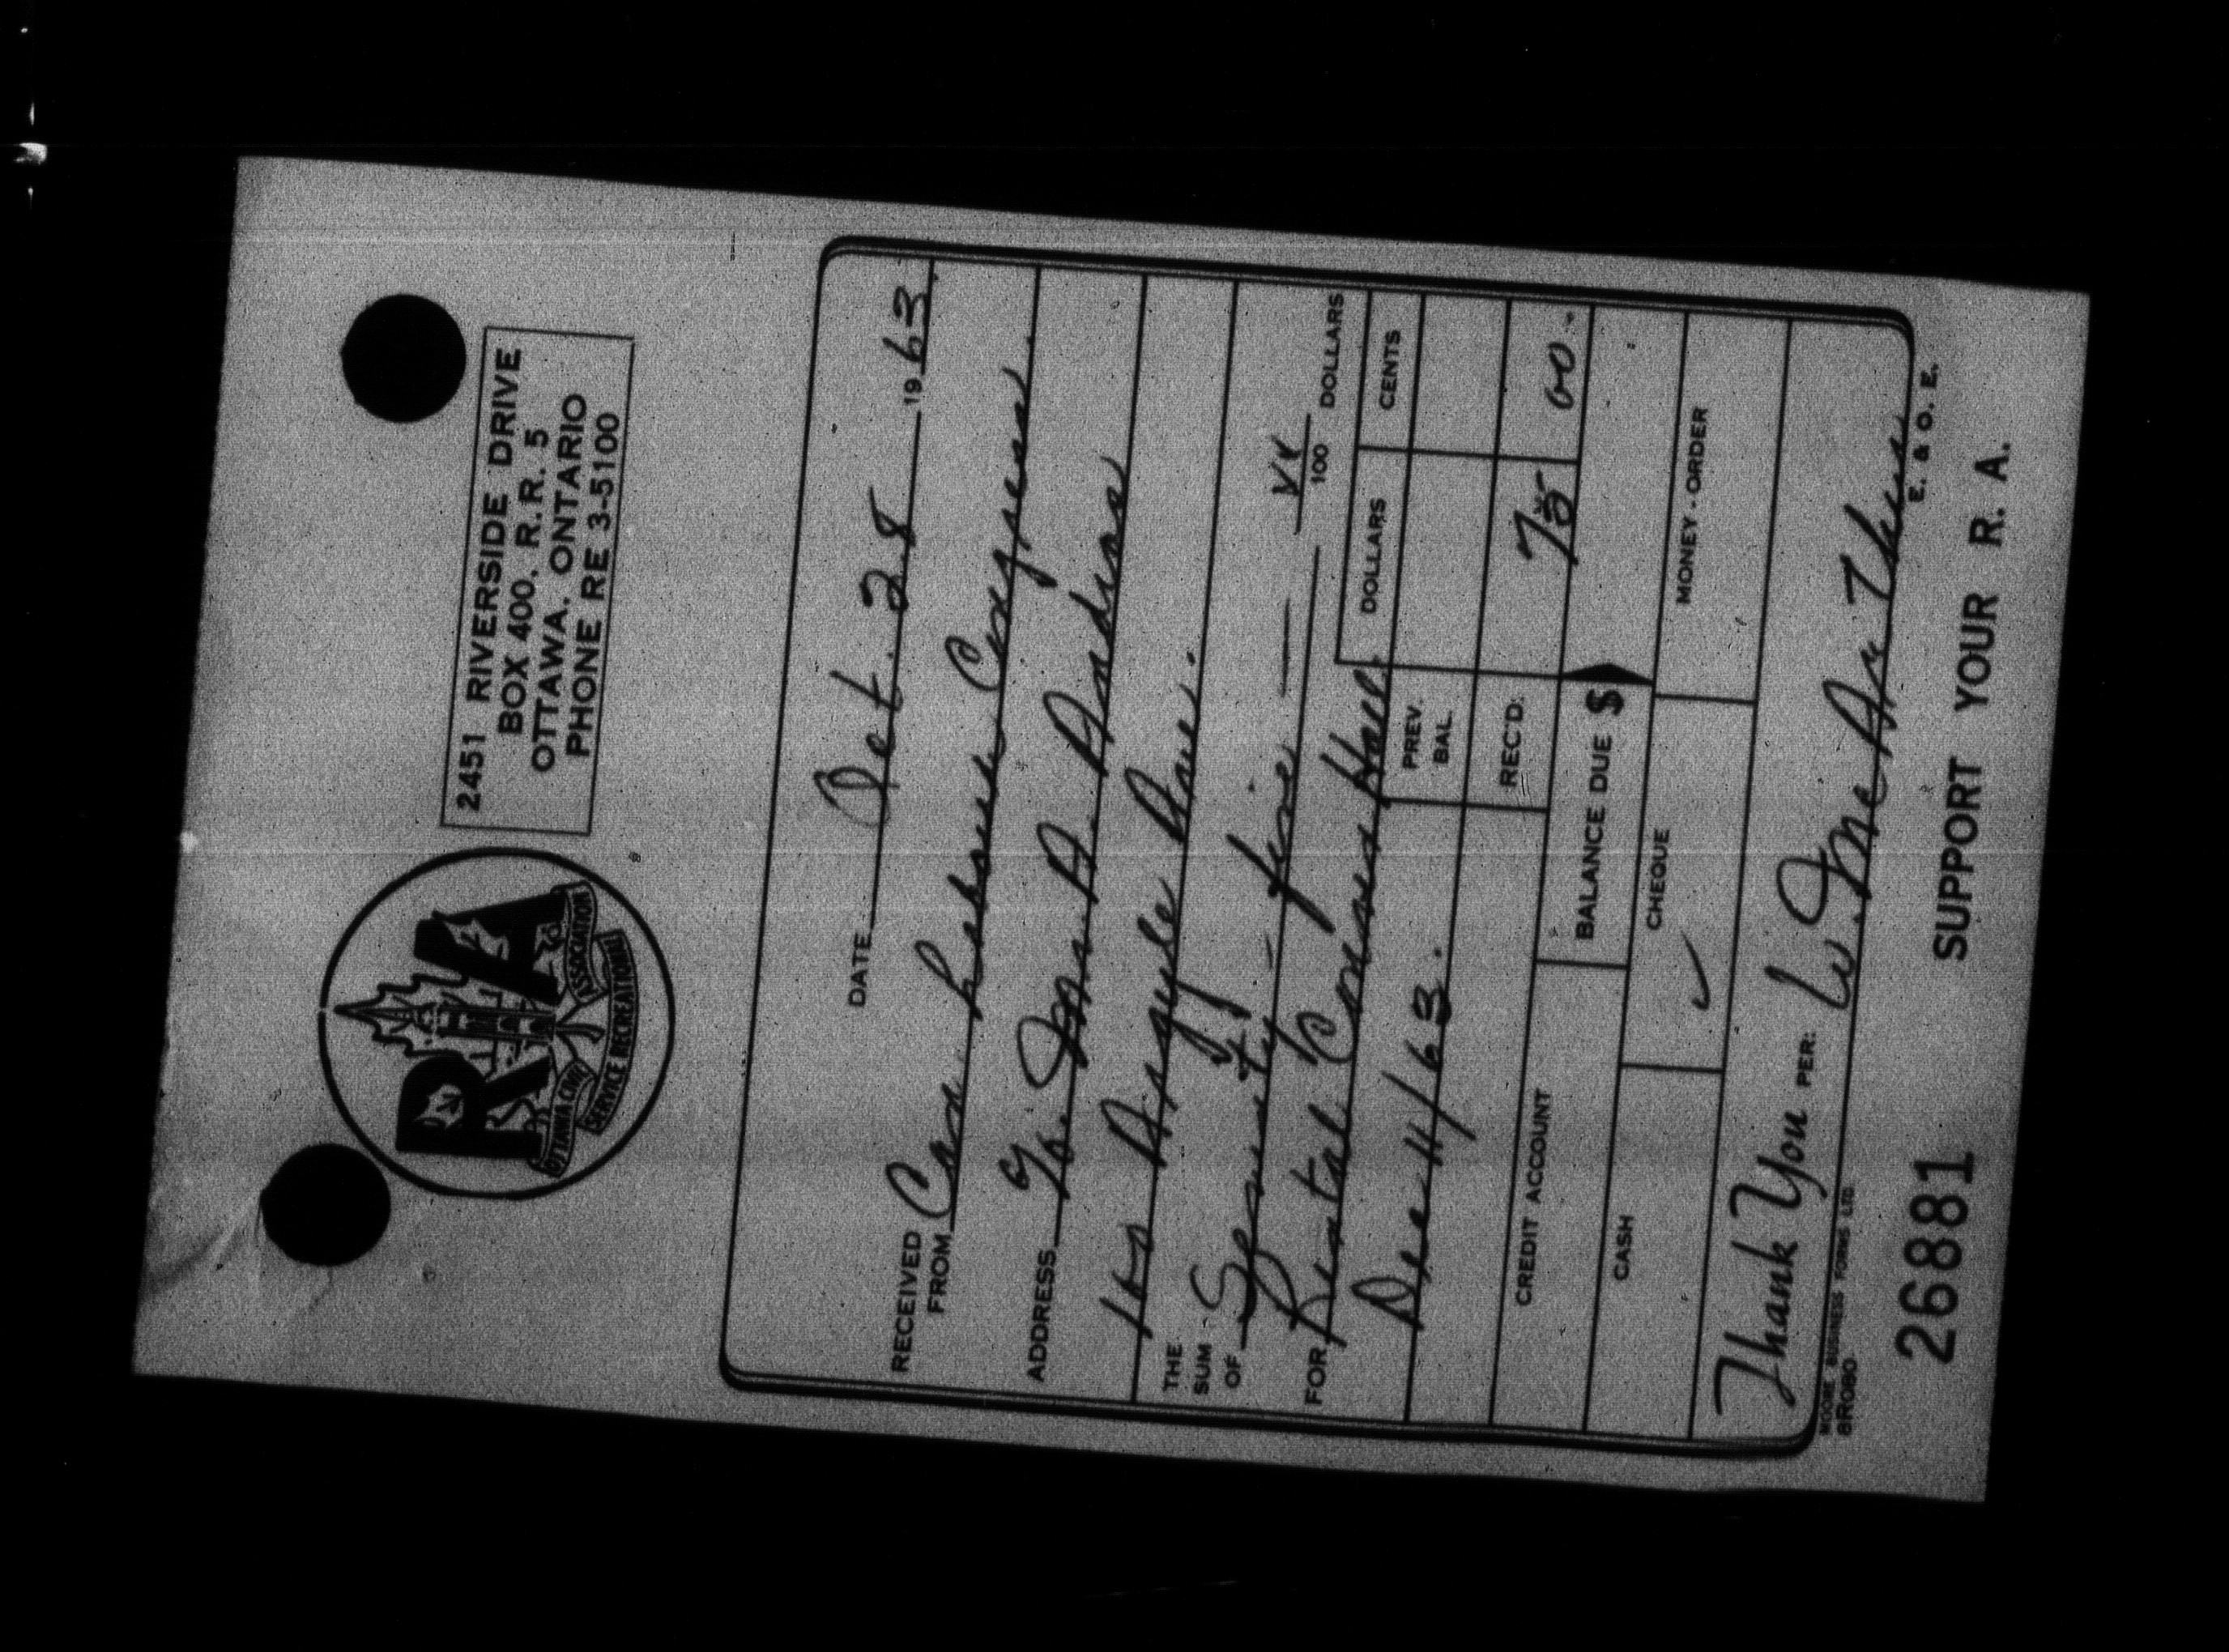 RA
OTTAWA CIVIL
SERVICE RECREATIONAL
ASSOCIATION
2451 RIVERSIDE DRIVE
BOX 400. R.R. 5
OTTAWA. ONTARIO
PHONE RE 3-5100
DATE Oct. 28 1963
RECEIVED FROM Can Labour Congress
ADDRESS c/o Mr. A. Andras
100 Argyle Ave.
THE SUM OF Seventy - five — xx/100 DOLLARS
FOR Rental Council Hall
Dec 11/63.
DOLLARS CENTS
PREV. BAL.
REC'D. 75 00
CREDIT ACCOUNT BALANCE DUE $
CASH CHEQUE ✓ MONEY-ORDER
Thank You PER: W. McArthur
MOORE BUSINESS FORMS LTD. E. & O. E.
26881 SUPPORT YOUR R. A.